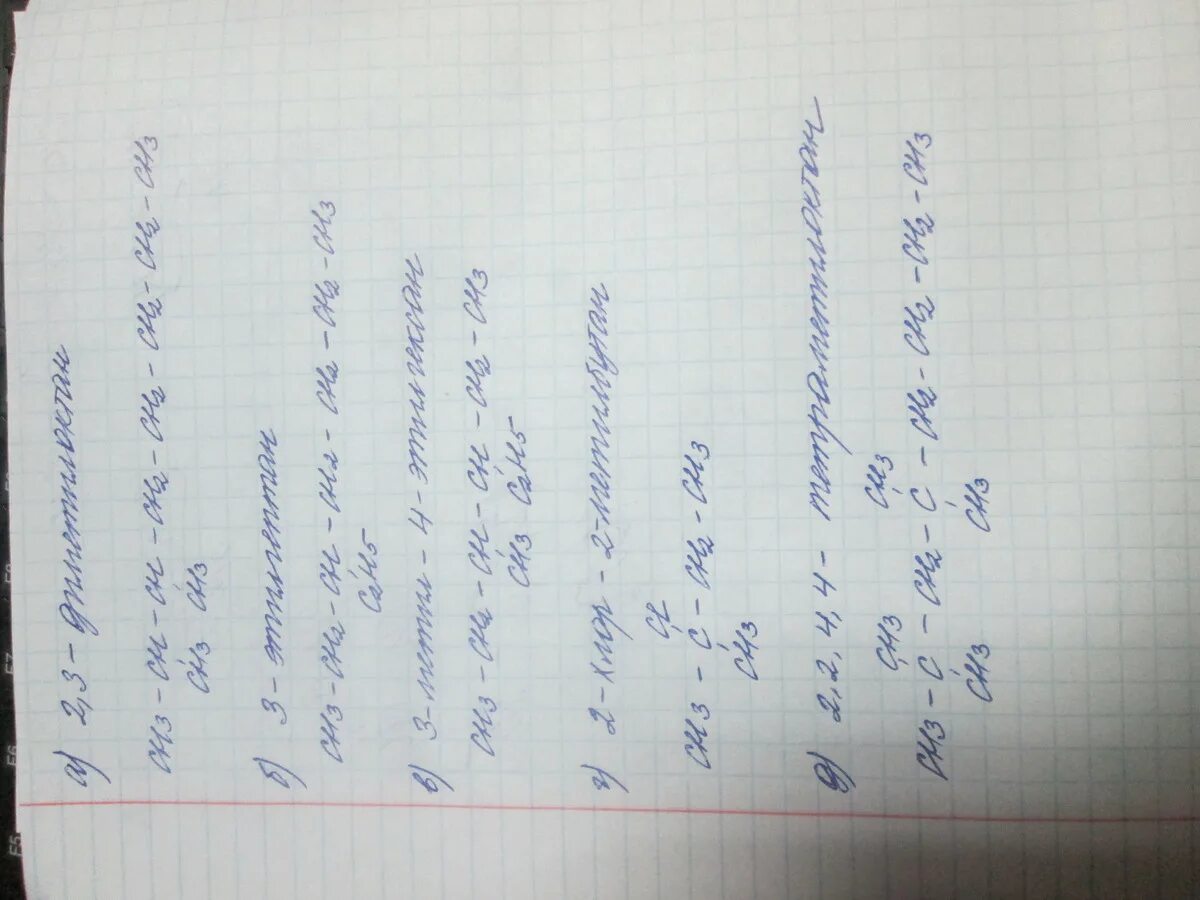 а) 2,3 - диметилоктан
CH3 - CH - CH - CH2 - CH2 - CH2 - CH2 - CH3
CH3 CH3
б) 3 - этилгептан
CH3 - CH2 - CH - CH2 - CH2 - CH2 - CH3
C2H5
в) 3 - метил - 4 - этилгексан
CH3 - CH2 - CH - CH - CH2 - CH3
CH3 C2H5
г) 2 - хлор - 2 - метилбутан
Cl
CH3 - C - CH2 - CH3
CH3
д) 2, 2, 4, 4 - тетраметилоктан
CH3 CH3
CH3 - C - CH2 - C - CH2 - CH2 - CH2 - CH3
CH3 CH3
F5 F6 F7